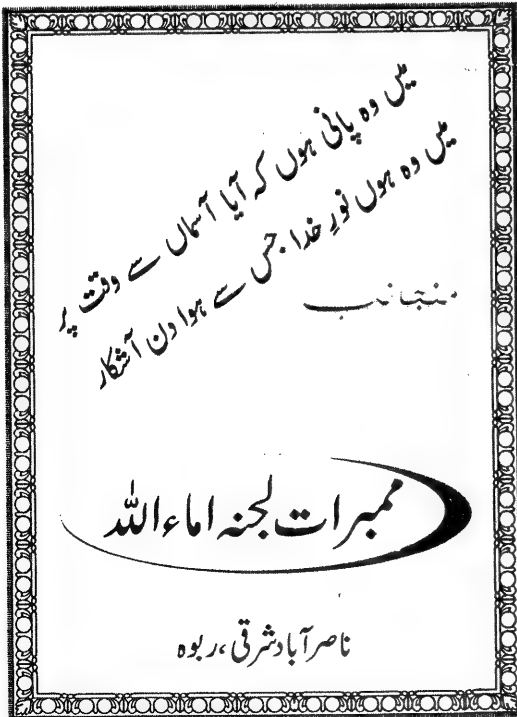 میں وہ پانی ہوں کہ آیا آسماں سے وقت پر
میں وہ ہوں نورِ خدا جس سے ہوا دن آشکار
منجانب
ممبرات لجنہ اماء اللہ
ناصر آباد شرقی، ربوہ